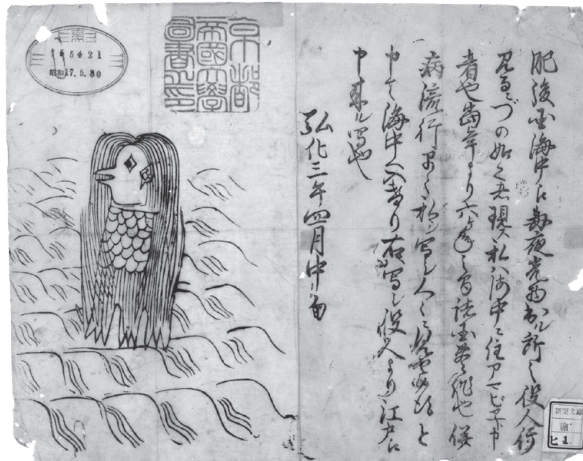 肥後国海中江毎夜光物出ル所之役人行
見るニづの如之者現ス私ハ海中ニ住アマビヱト申
者也當年より六ケ年之間諸国豊作也併
病流行早々私ヲ写シ人々ニ見セ候得と
申て海中へ入けり右写シ役人より江戸江
申来ル写也
弘化三年四月中旬
京都
帝國大學
圖書之印
昭和17.5.30